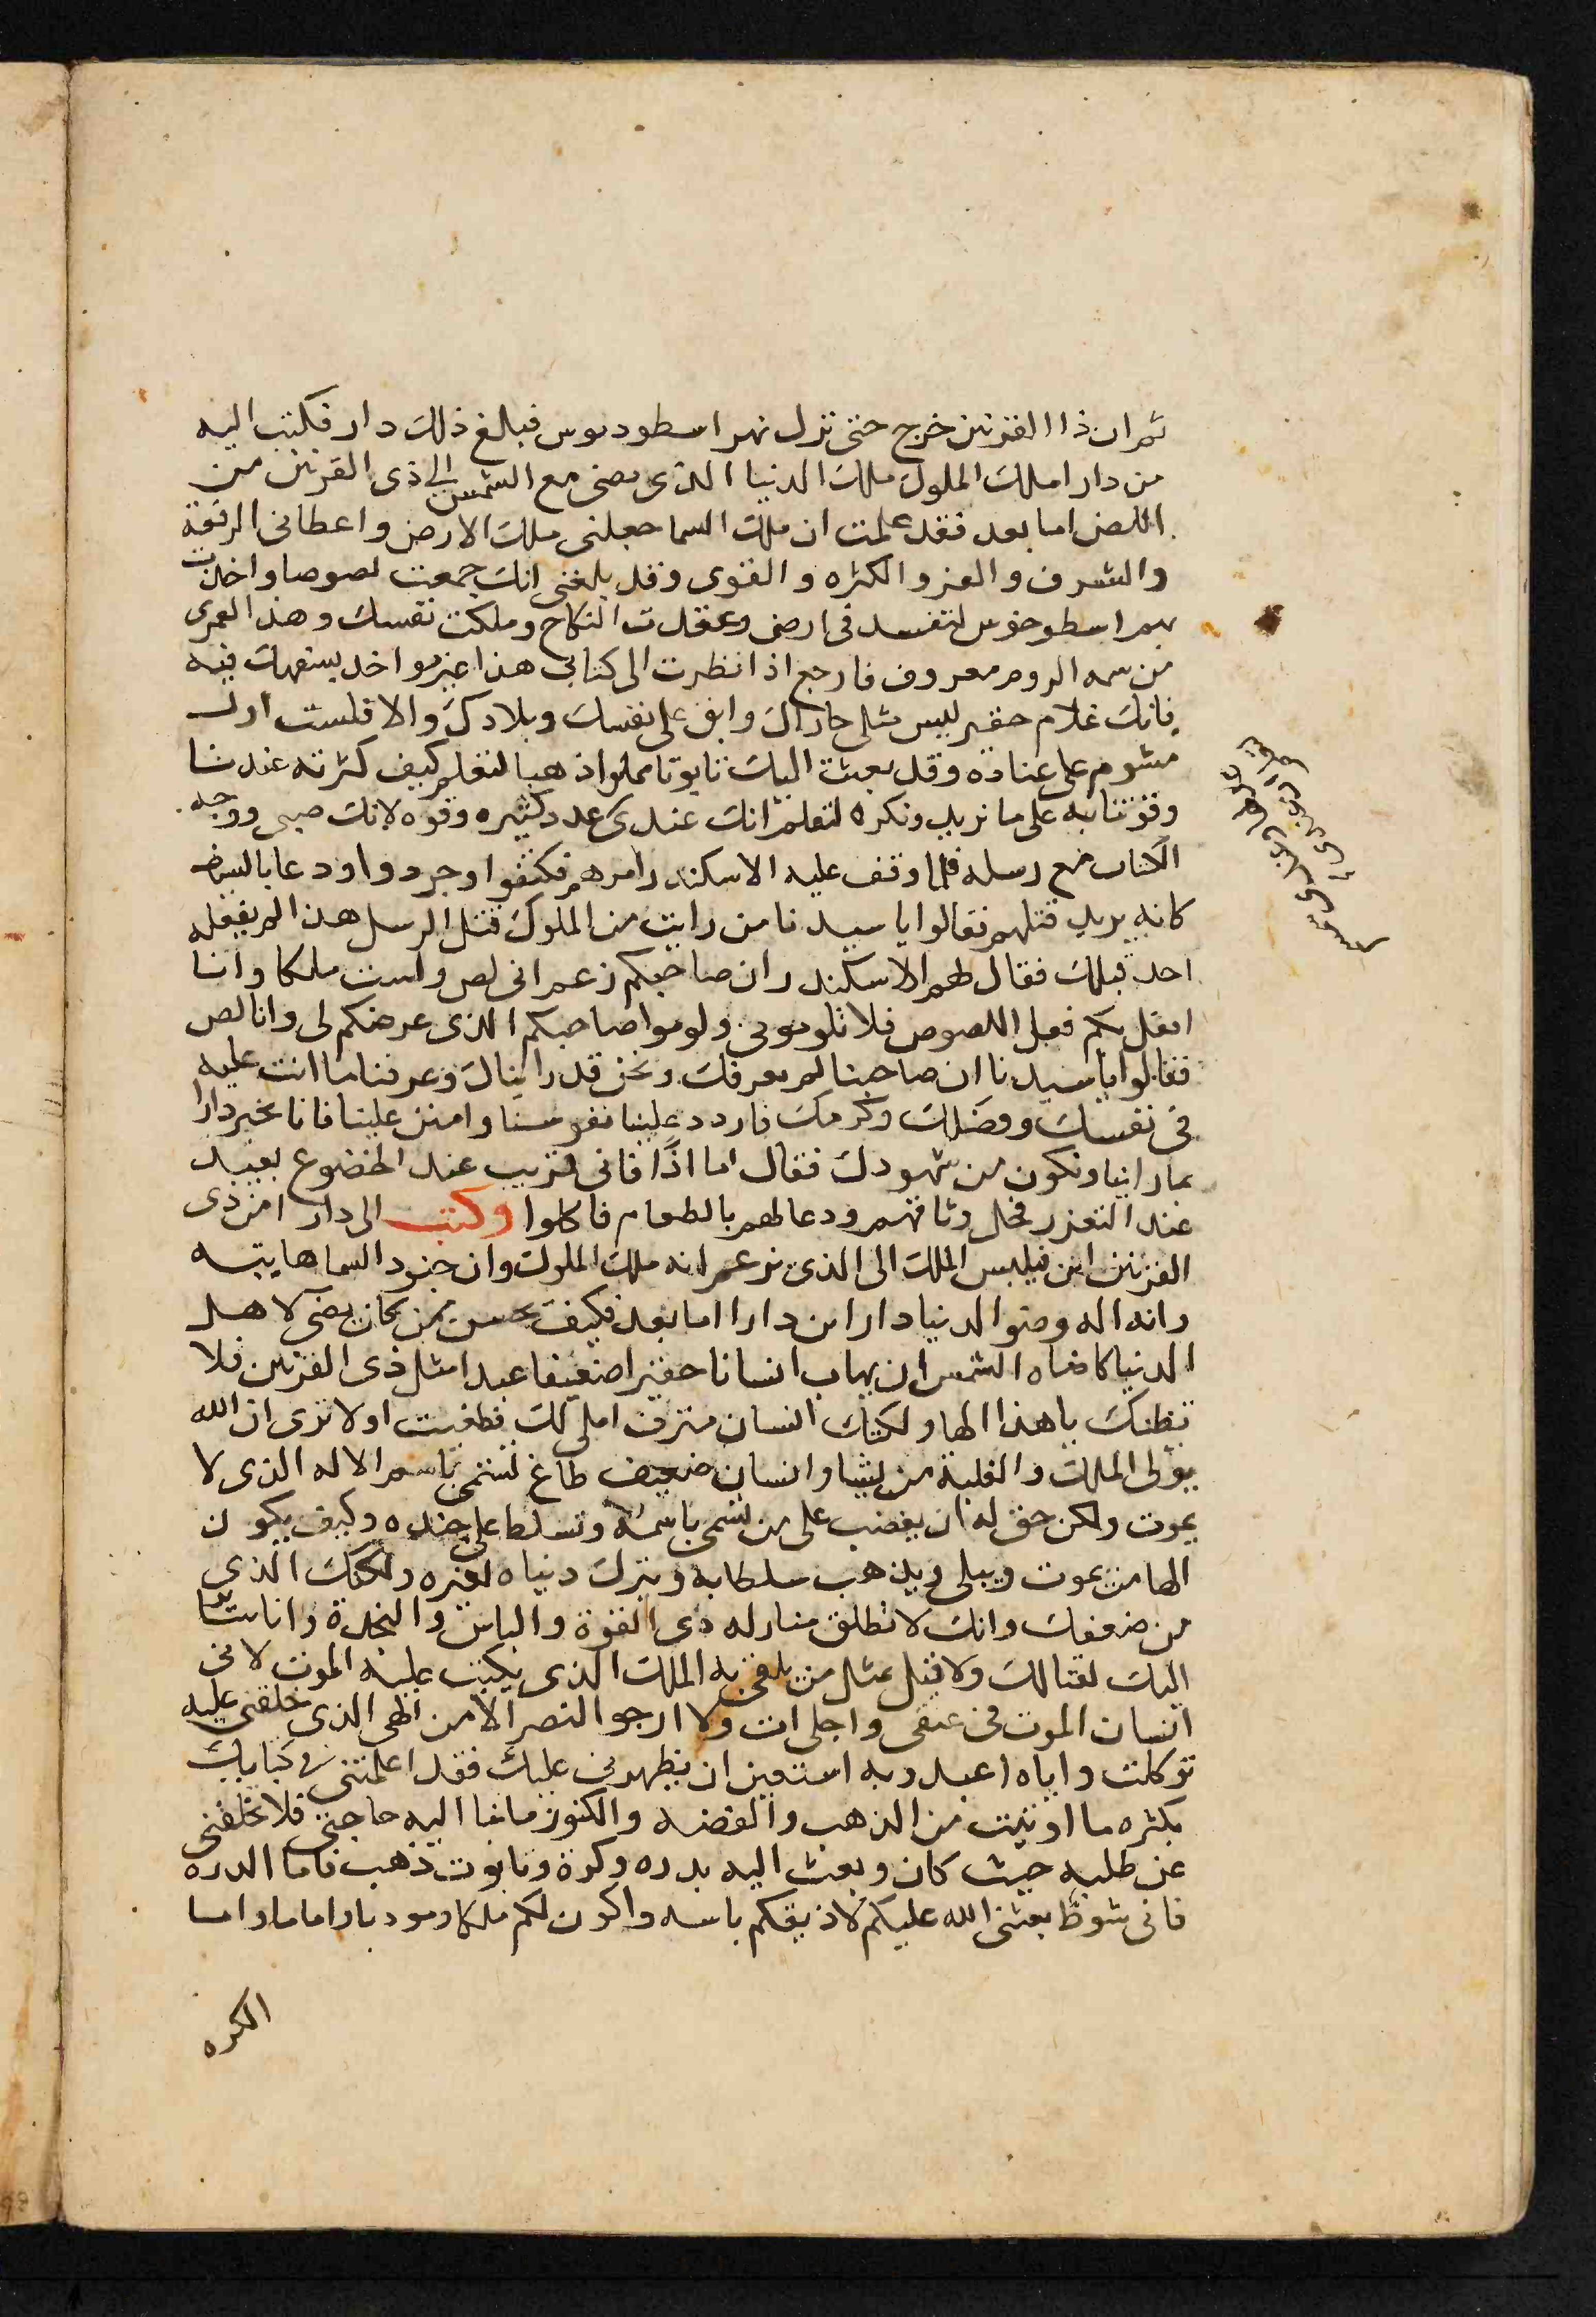 ثم ان ذا القرنين خرج حتى نزل نهر اسطودىوس فبلغ ذلك دارا فكتب اليه
من دارا ملك الملوك ملك الدنيا الذى يضى مع الشمس الى ذى القرنين من
اللص اما بعد فقد علمت ان ملك السما جعلنى ملك الارض واعطانى الرفعة
والشرف والعز والكثره والقوى وقد بلغنى انك جمعت لصوصا واخذت
نهر اسطوخوس لتفسد فى ارضى وعقدت التكاح وملكت نفسك وهذا لعمرى
من سمه الروم معروف فارجع اذا نظرت الى كتابى هذا غير مواخد بسفهك فيه
فانك غلام حقير ليس مثلى جاراك وابق على نفسك وبلادك والا فلست اول
مشوم على عناده وقد بعثت اليك تابوتا مملوا ذهبا لتعلم كيف كثرته عندنا
وقوتنا به على ما نريد ونكره لتعلم انك عندى عدد كثيره وقوه لانك صبى ووجه
الكتاب مع رسله فلما وقف عليه الاسكندر امرهم فكتفوا وجردوا ودعا بالسياف
كانه يريد قتلهم فقالوا يا سيدنا من رايت من الملوك قتل الرسل هذا لم يفعله
احد قبلك فقال لهم الاسكندر ان صاحبكم زعم انى لص ولست ملكا وانا
افعل بكم فعل اللصوص فلا تلومونى ولوموا صاحبكم الذى عرضكم لى وانا لص
فقالوا يا سيدنا ان صاحبنا لم يعرفك ونحن قد رايناك وعرفنا ما انت عليه
فى نفسك وفضلك وكرمك فاردد علينا نفوسنا وامنن علينا فانا نخبر دارا
بما راينا ونكون من شهودك فقال اما اذًا فانى قريب عند الخضوع بعيد
عند التعزر فحل وثاقهم ودعا لهم بالطعام فاكلوا وكتب الى دارا من ذى
القرنين ابن فيلبس الملك الى الذى زعم انه ملك الملوك وان جنود السما هايبته
وانه اله وضوا الدنيا دارا بن دارا اما بعد فكيف يحسن بمن كان يضى لاهل
الدنيا كاضاه الشمس ان يهاب انسانا حقيرا ضعيفا عبدا مثل ذى القرنين فلا
نظنك يا هذا الها ولكنك انسان مترف املى لك فطغيت اولا ترى ان الله
يولى الملك والغلبة من يشا وانسان ضعيف طاغ تسمى باسم الاله الذى لا
يموت ولكن حق له ان يغضب على من تسمى باسمه وتسلط على جنده وكيف يكون
الها من يموت ويبلى ويذهب سلطانه ويترك دنياه لغيره ولكنك الذى
من ضعفك وانك لا تطلق منازله ذى القوة والباس والنجدة وانا سائر
اليك لقتالك ولا قيل بمثل من يلقى به الملك الذى يكتب عليه الموت لانى
انسان الموت فى عنقى واجلى ات ولا ارجو النصر الا من الهى الذى خلقنى عليه
توكلت واياه اعبد وبه استعين ان يظهرنى عليك فقد اعلمتنى فى كتابك
بكثره ما اوتيت من الذهب والفضه والكنوز مابنا اليه حاجة فلا تخلفنى
عن طلبه حيث كان وبعث اليه بدره وكرة وتابوت ذهب فاما الدره
فانى شوظ بعثنى الله عليكم لاذيقكم باسه واكون لكم ملكا ومودبا واماما واما
الكره